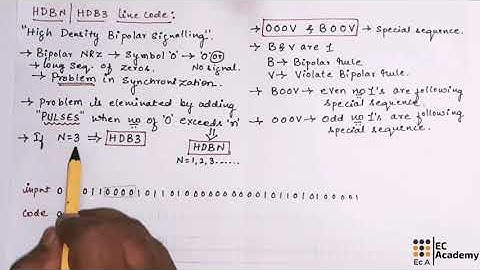 HDBN | HDB3 line code:
"High Density Bipolar Signalling".
→ Bipolar NRZ → Symbol 'O' → 'O' or No signal.
→ long Seq. of zeros.
→ Problem in Synchronization.
→ Problem is eleminated by adding
"PULSES" when no of 'O' exceeds 'n'
→ If N=3 ⇒ HDB3
HDBN
N=1,2,3......
→ OOOV & BOOV → Special sequence.
→ B & V are 1
B → Bipolar Rule
V → Violate Bipolar Rule.
→ BOOV → even no 1's are following special sequence.
→ OOOV → Odd no 1's are following special sequence.
input
code
EC Academy
EC A